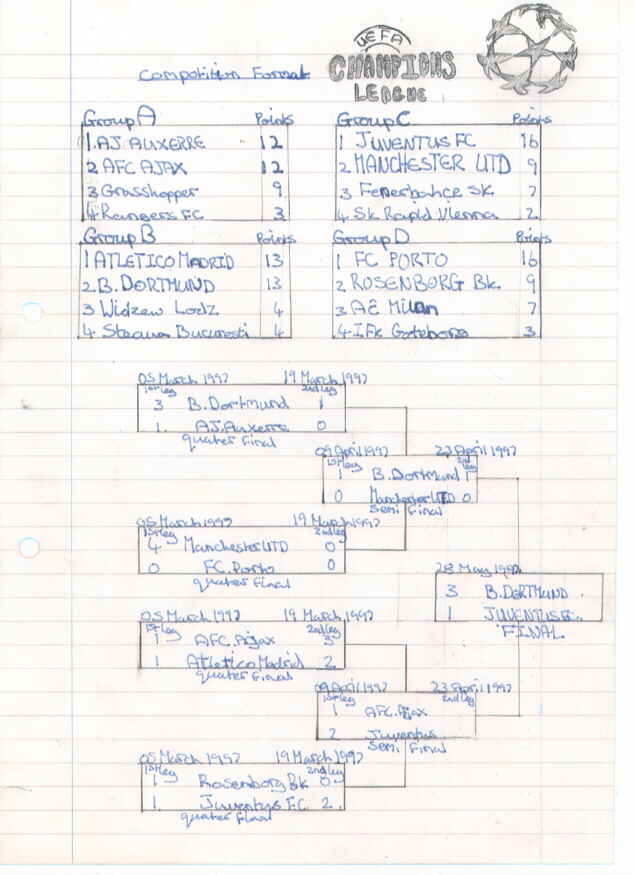 UEFA
Competition Format CHAMPIONS
LEAGUE
Group A Points
1. AJ AUXERRE 12
2 AFC AJAX 12
3 Grasshopper 9
4 Rangers FC 3
Group C Points
1 JUVENTUS FC 16
2 MANCHESTER UTD 9
3 Fenerbahce SK 7
4 SK Rapid Vienna 2
Group B Points
1 ATLETICO MADRID 13
2 B. DORTMUND 13
3 Widzew Lodz 4
4 Steaua Bucuresti 4
Group D Points
1 FC PORTO 16
2 ROSENBORG Bk. 9
3 AC Milan 7
4 IFK Goteborg 3
05 March 1997 19 March 1997
1st leg 2nd leg
3 B. Dortmund 1
1. AJ. Auxerre 0
quater Final
09 April 1997 23 April 1997
1st leg 2nd leg
1 B. Dortmund 1
0 Manchester UTD 0
Semi Final
05 March 1997 19 March 1997
1st leg 2nd leg
4 Manchester UTD 0
0 FC. Porto 0
quater Final
28 May 1997
3 B. DORTMUND
1 JUVENTUS FC.
FINAL
05 March 1997 19 March 1997
1st leg 2nd leg
1 AFC. Ajax 3
1 Atletico Madrid 2
quater Final
09 April 1997 23 April 1997
1st leg 2nd leg
1 AFC. Ajax
2 Juventus
Semi Final
05 March 1997 19 March 1997
1st leg 2nd leg
1 Rosenborg Bk 0
1. Juventus F.C. 2
quater Final